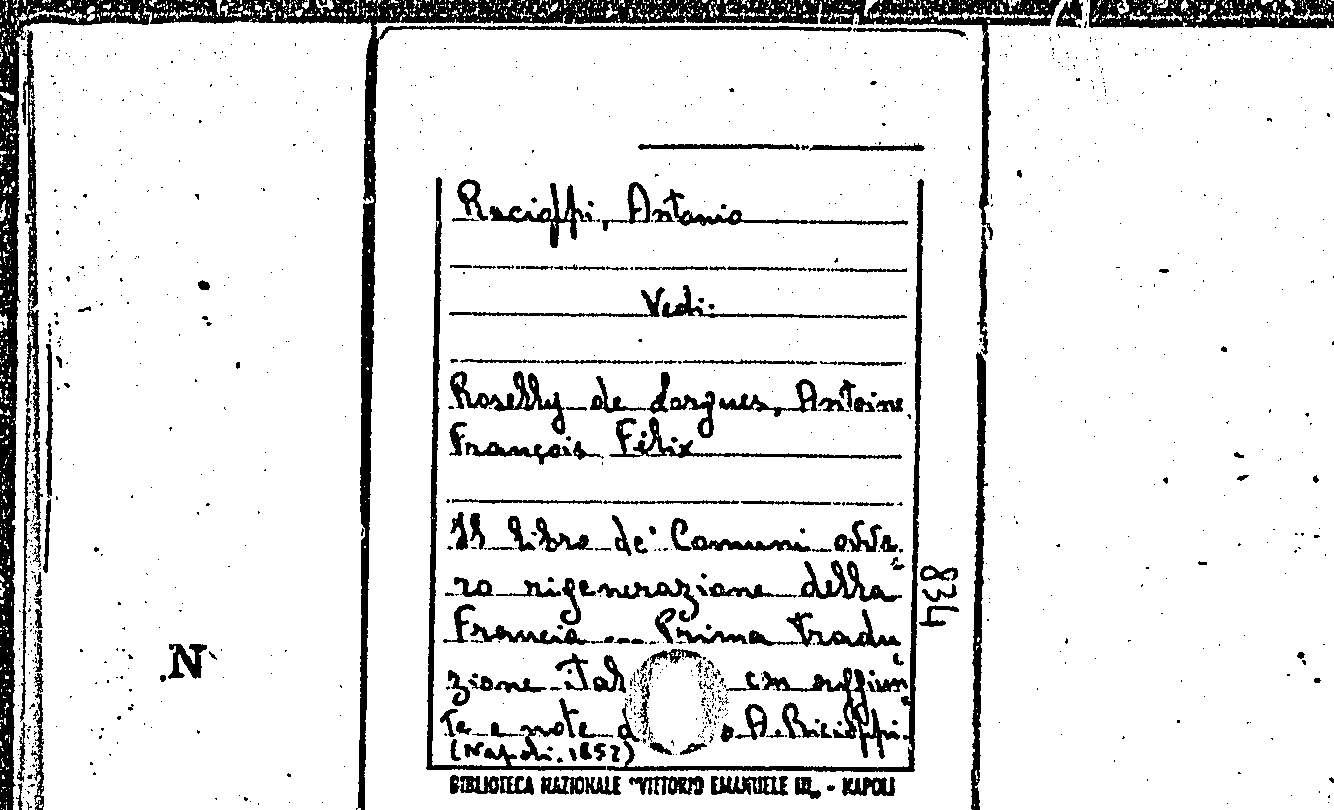 Racioppi, Antonio
Vedi:
Roselly de Lorgues, Antoine
François Félix
Il libro de' Comuni ovve-
ro rigenerazione della
Francia ... Prima tradu-
zione ital con aggiun-
te e note d o A. Racioppi.
(Napoli. 1852)
BIBLIOTECA NAZIONALE "VITTORIO EMANUELE III" - NAPOLI
834
N